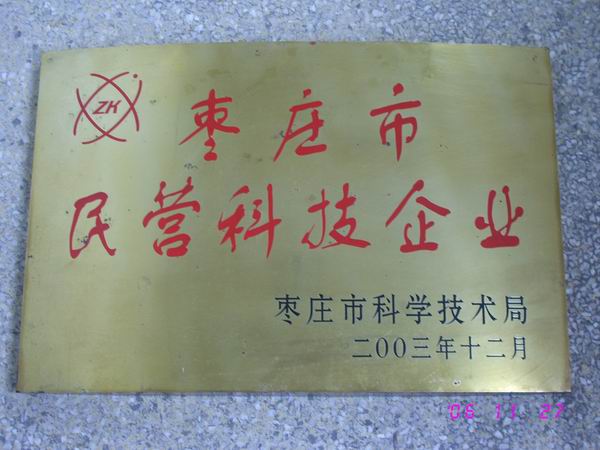 ZK
枣庄市
民营科技企业
枣庄市科学技术局
二00三年十二月
06 11 27